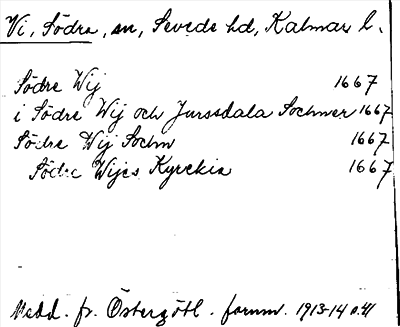 Vi, Södra, sn, Sevede hd, Kalmar l.
Södre Wij 1667
i Södre Wij och Jurssdala Sochner 1667
Södre Wij Sochn 1667
Södre Wijes Kyrckia 1667
Medd. fr. Östergötl. fornm. 1913-14 s. 41